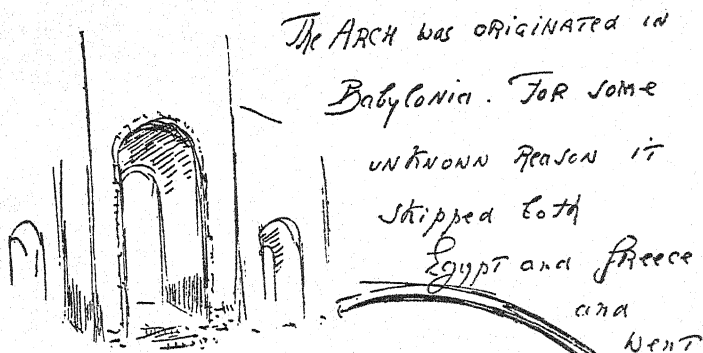 The ARCH was ORiGiNATed iN
BabyloNia. FoR some
uNKNowN ReasoN iT
skipped both
EgypT and GReece
and
weNT